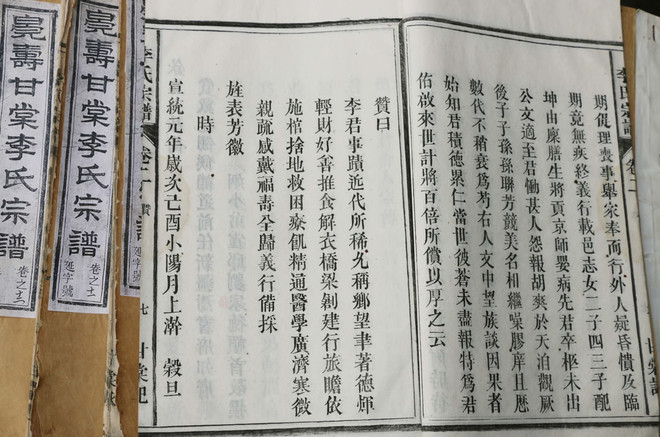 期俔理喪事舉家奉而行外人疑昏憒及臨
期竟無疾終義行載邑志女二子四三子配
坤由廩膳生將貢京師嬰病先君卒柩未出
公文適至君慟甚人怨報胡爽於天洎觀厥
後子子孫孫聯芳競美名相繼噪膠庠且歷
數代不稍衰為芶右人文中望族談因果者
始知君積德累仁當世彼蒼未盡報特為君
佑啟來世計將百倍所償以厚之云
贊曰
李君事蹟近代所稀允稱鄉望聿著德煇
輕財好善推食解衣橋梁剏建行旅瞻依
施棺捨地救困療飢精通醫學廣濟寒微
親疏感戴福壽全歸義行備採
旌表芳徽
時
宣統元年歲次己酉小陽月上澣 穀旦
李氏宗譜 卷十 贊 七 甘棠記
壽甘棠李氏宗譜
卷之
延字號
壽甘棠李氏宗譜
卷之
延字號